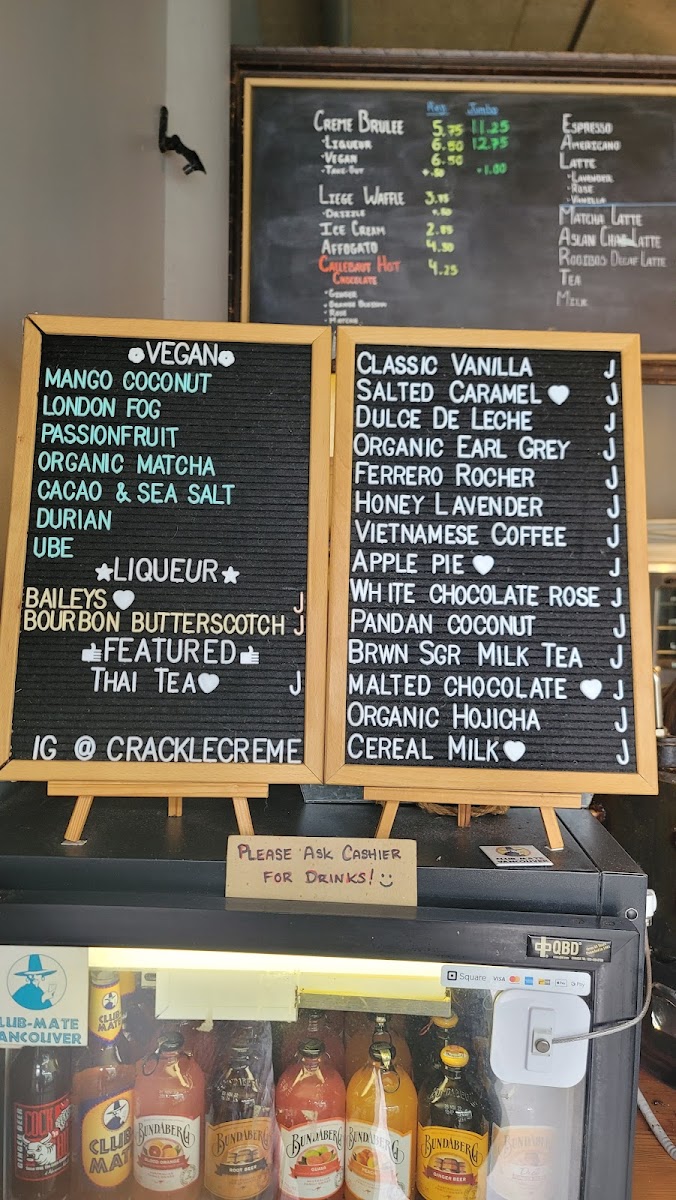 Reg Jumbo
CREME BRULEE 5.75 11.25
•LIQUEUR 6.50 12.75
•VEGAN 6.50
•TAKE-OUT +.50 +1.00
LIEGE WAFFLE
•DRIZZLE
ICE CREAM
AFFOGATO
CALLEBAUT HOT CHOCOLATE 4.25
•GINGER
•ORANGE BLOSSOM
•ROSE
•MATCHA
ESPRESSO
AMERICANO
LATTE
•LAVENDER
•ROSE
•VANILLA
MATCHA LATTE
ASLAN CHAI LATTE
ROOIBOS DECAF LATTE
TEA
MILK
VEGAN
MANGO COCONUT
LONDON FOG
PASSIONFRUIT
ORGANIC MATCHA
CACAO & SEA SALT
DURIAN
UBE
★LIQUEUR★
BAILEYS ♥ J
BOURBON BUTTERSCOTCH J
👍FEATURED👍
THAI TEA♥ J
IG @ CRACKLECREME
CLASSIC VANILLA J
SALTED CARAMEL ♥ J
DULCE DE LECHE J
ORGANIC EARL GREY J
FERRERO ROCHER J
HONEY LAVENDER J
VIETNAMESE COFFEE J
APPLE PIE ♥ J
WHITE CHOCOLATE ROSE J
PANDAN COCONUT J
BRWN SGR MILK TEA J
MALTED CHOCOLATE ♥ J
ORGANIC HOJICHA J
CEREAL MILK♥ J
PLEASE ASK CASHIER
FOR DRINKS!
CLUB-MATE
VANCOUVER
QBD
Square VISA
CLUB-MATE
VANCOUVER
CLUB
MATE
GINGER BEER
COCK
BULL
CLUB
MATE
BUNDABERG
BLOOD ORANGE
BUNDABERG
ROOT BEER
BUNDABERG
GUAVA
BUNDABERG
BUNDABERG
GINGER BEER